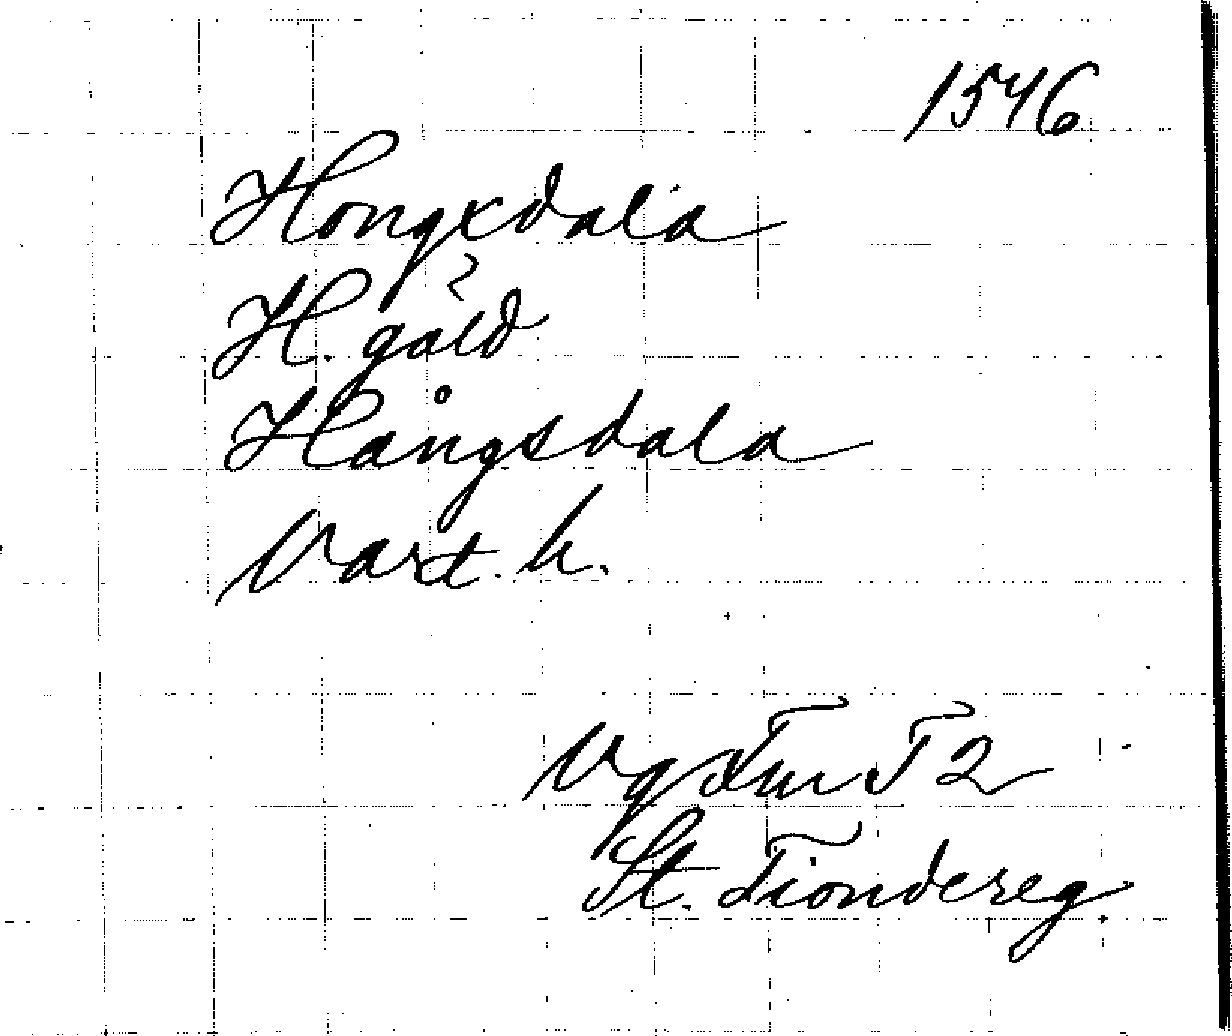 1546
Hongxdala
H. gäld
Hångsdala
Vart. h.
Vg Tm T 2
St. Tiondereg.